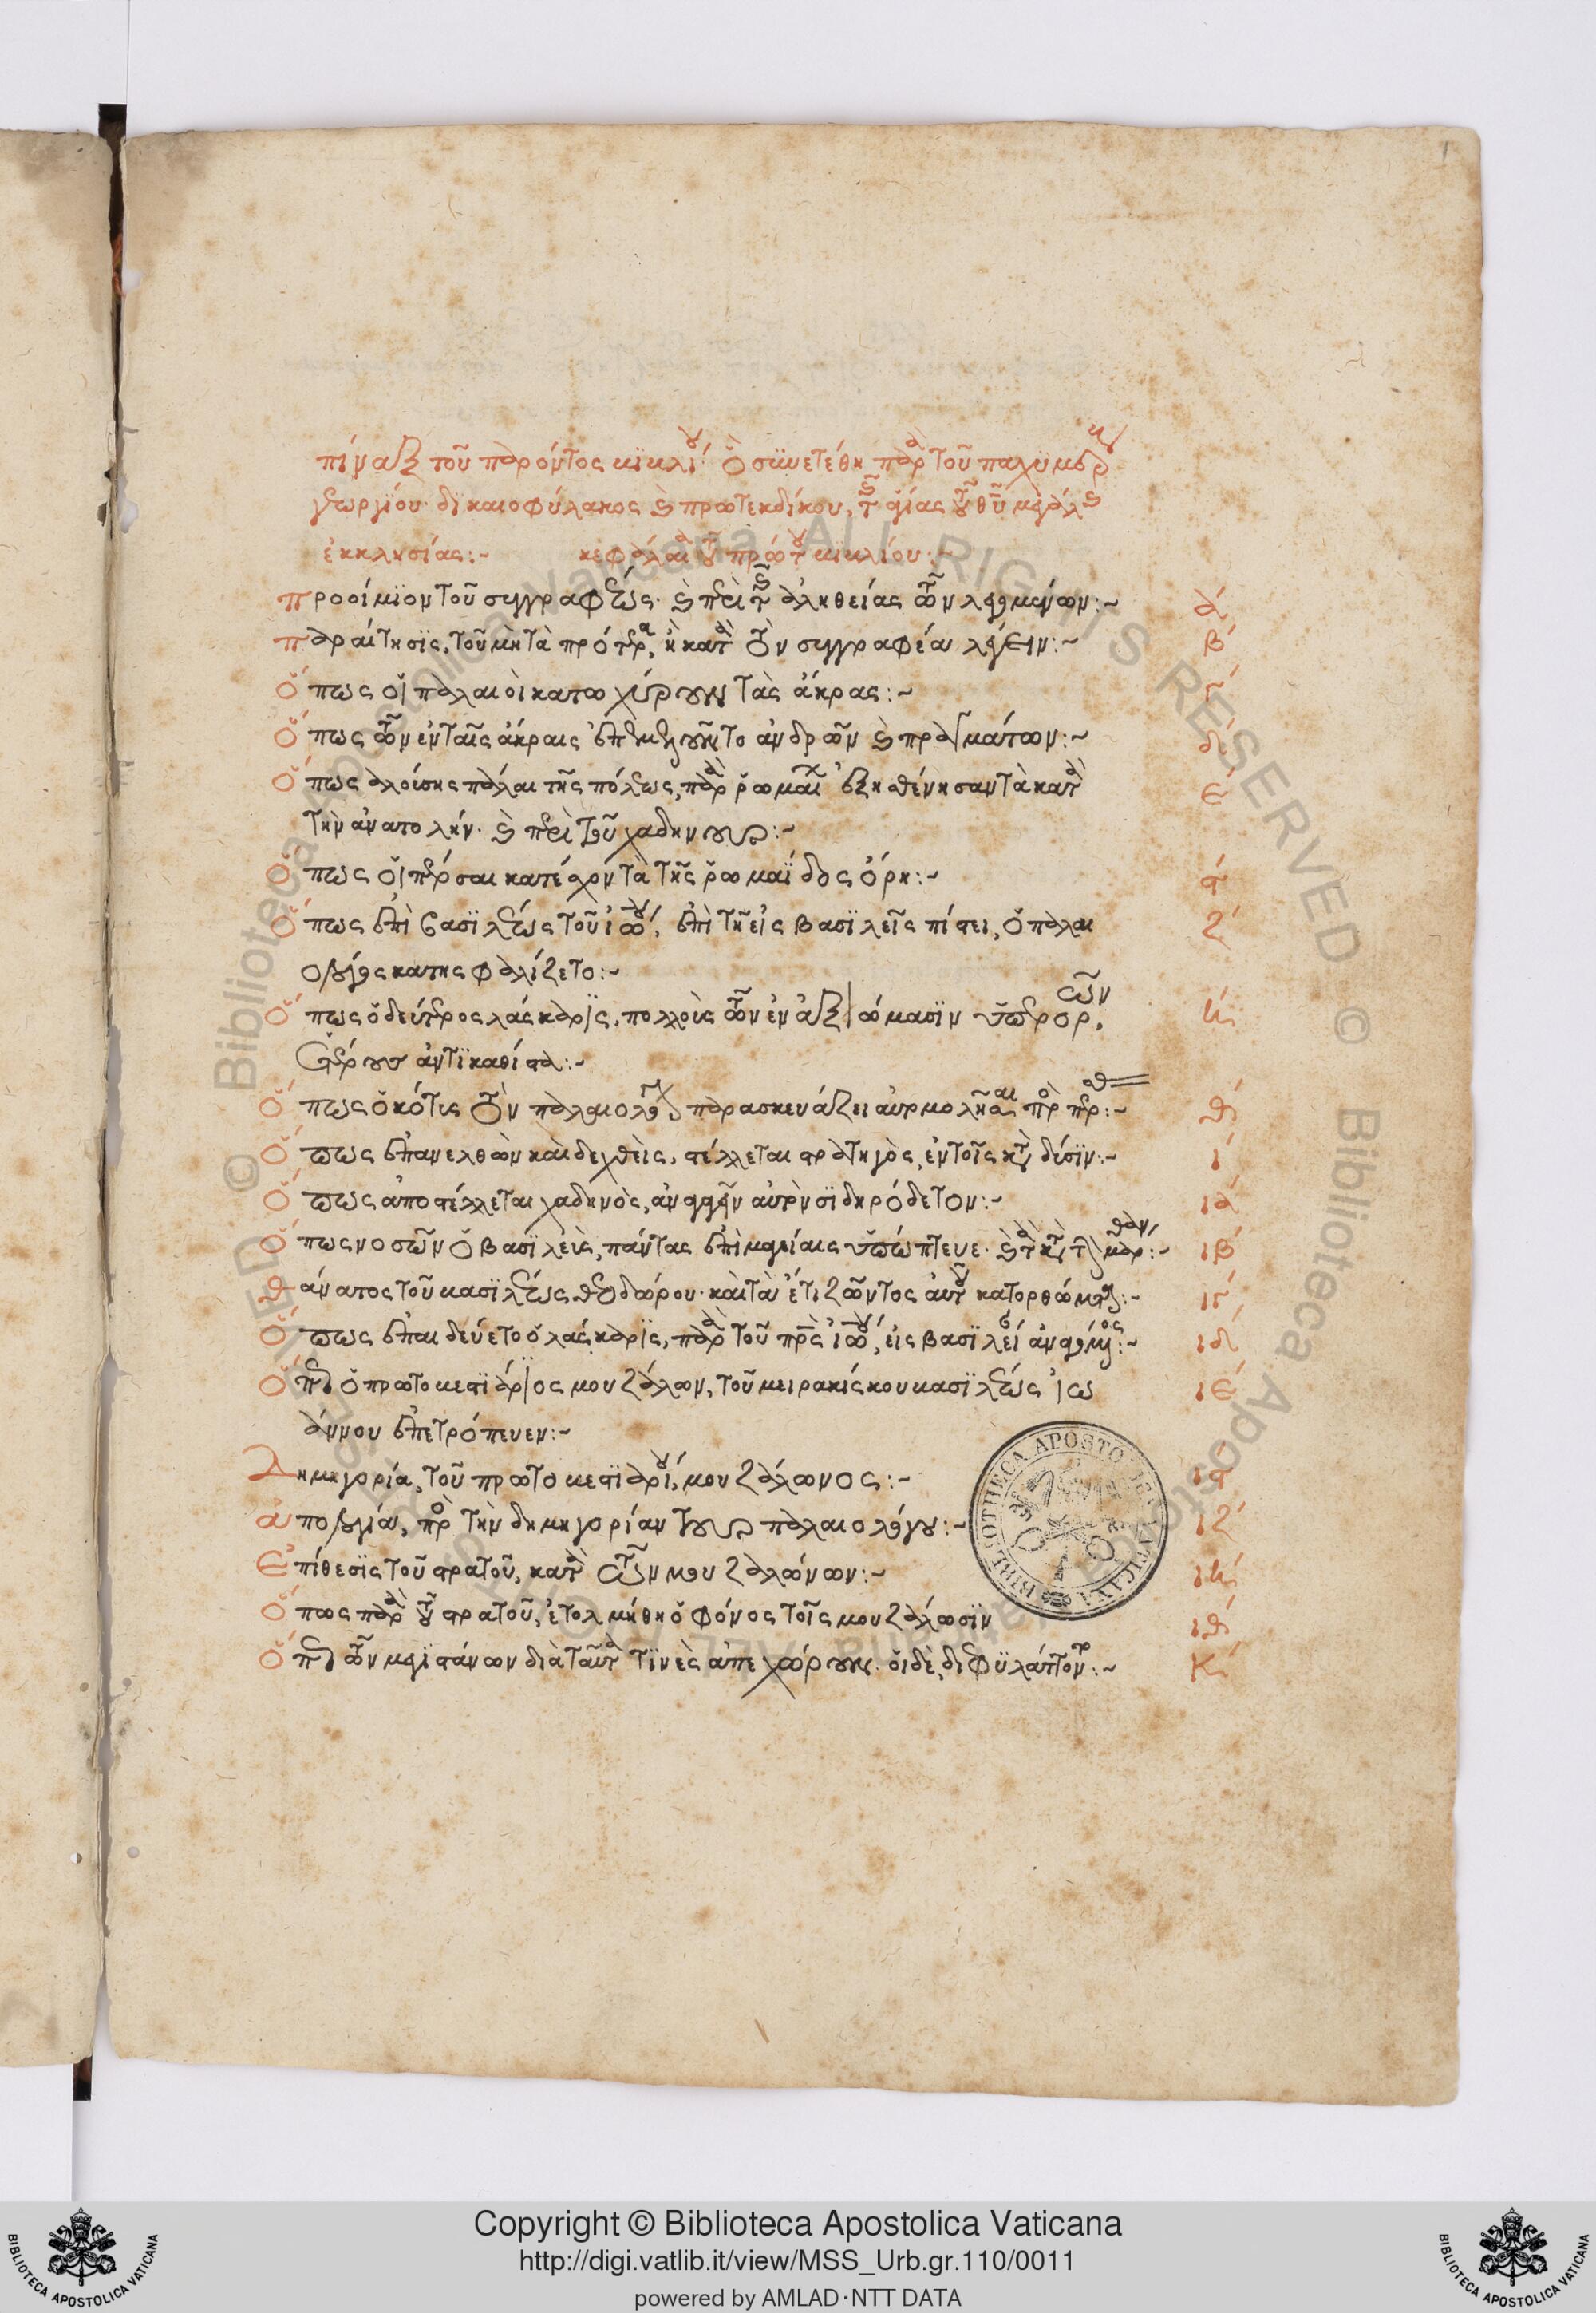 πίναξ τοῦ παρόντος κϊκλίου· ὃ σϋνετέθη παρὰ τοῦ παχϋμέρη
γεωργίου· δϊκαιοφύλακος καὶ πρωτεκδίκου, τῆς ἁγίας τοῦ θῦ μεγάλης
ἐκκλησίας:~ κεφάλαια τοῦ πρώτου κϊκλίου:~
προοίμϊον τοῦ συγγραφέως· καὶ περὶ τῆς ἀληθείας τῶν λεγομένων:~ α´
παραίτησϊς, τοῦ μὴ τὰ πρότερα, κατὰ τὸν συγγραφέα λέγειν:~ β´
ὅπως οἱ πάλαι ὀϊκατωχύρουν τὰς ἄκρας:~ γ´
ὅπως τῶν ἐν ταῖς ἄκραις ἐπεμελοῦντο ἀνδρῶν καὶ πραγμάτων:~ δ´
ὅπως ἁλούσης πάλαι τῆς πόλεως, παρὰ ῥωμαίων ἐξησθένησαν τὰ κατὰ ε´
τὴν ἀνατολήν· καὶ περὶ τοῦ χαδηνοῦ:~
ὅπως οἱ πέρσαι κατέσχον τὰ τῆς ῥωμαΐδος ὄρη:~ ϛ´
ὅπως ἐπὶ βασϊλέως τοῦ ἰωάννου, ἐπὶ τῇ εἰς βασϊλεῖς πίστει, ὁ παλαι ζ´
ολόγος κατησφαλίζετο:~
ὅπως ὁ δεύτερος λάσκαρϊς, πολλοὺς τῶν ἐν ἀξιώμασϊν ὑφορῶν, η´
ἑτέρους ἀντϊκαθίστα:~
ὅπως ὁ κότυς τὸν παλαιολόγον παρασκευάζει αὐτομολῆσαι πρὸς πέρσας:~ θ´
ὅπως ἐπανελθὼν καὶ δεχθεὶς, στέλλεται στρατηγὸς, ἐν τοῖς κατὰ δύσϊν:~ ι´
ὅπως ἀποστέλλεται χαδηνὸς, ἀναγαγεῖν αὐτὸν σϊδηρόδετον:~ ια´
ὅπως νοσῶν ὁ βασϊλεὺς, πάντας ἐπὶ μαγείαις ὑπώπτευε· καὶ τὰ κατὰ τὴν μάρθαν:~ ιβ´
θάνατος τοῦ βασϊλέως θεοδώρου· καὶ τὰ ἔτι ζῶντος αὐτοῦ κατορθώματα:~ ιγ´
ὅπως ἐπαιδεύετο ὁ λάσκαρϊς, παρὰ τοῦ πρς ἰωάννου, εἰς βασϊλείου ἀναγόμενος:~ ιδ´
ὅπως ὁ πρωτοβεστϊάριος μουζάλων, τοῦ μειρακίσκου βασϊλέως ἰω ιε´
άννου ἐπετρόπευεν:~
Δημηγορία, τοῦ πρωτοβεστϊαρίου, μουζάλωνος:~ ιϛ´
ἀπολογία, πρὸς τὴν δημηγορίαν τοῦ παλαιολόγου:~ ιζ´
Ἐπίθεσϊς τοῦ στρατοῦ, κατὰ τῶν μουζαλώνων:~ ιη´
ὅπως παρὰ τοῦ στρατοῦ, ἐτολμήθη ὁ φόνος τοῖς μουζάλωσϊν ιθ´
ὅπως τῶν μεγϊστάνων διὰ ταῦτα τϊνὲς ἀπεχώρουν· οἱ δὲ, διεφϋλάττοντο:~ κ´
BIBLIOTHECA APOSTOLICA VATICANA
1
Copyright © Biblioteca Apostolica Vaticana
http://digi.vatlib.it/view/MSS_Urb.gr.110/0011
powered by AMLAD·NTT DATA